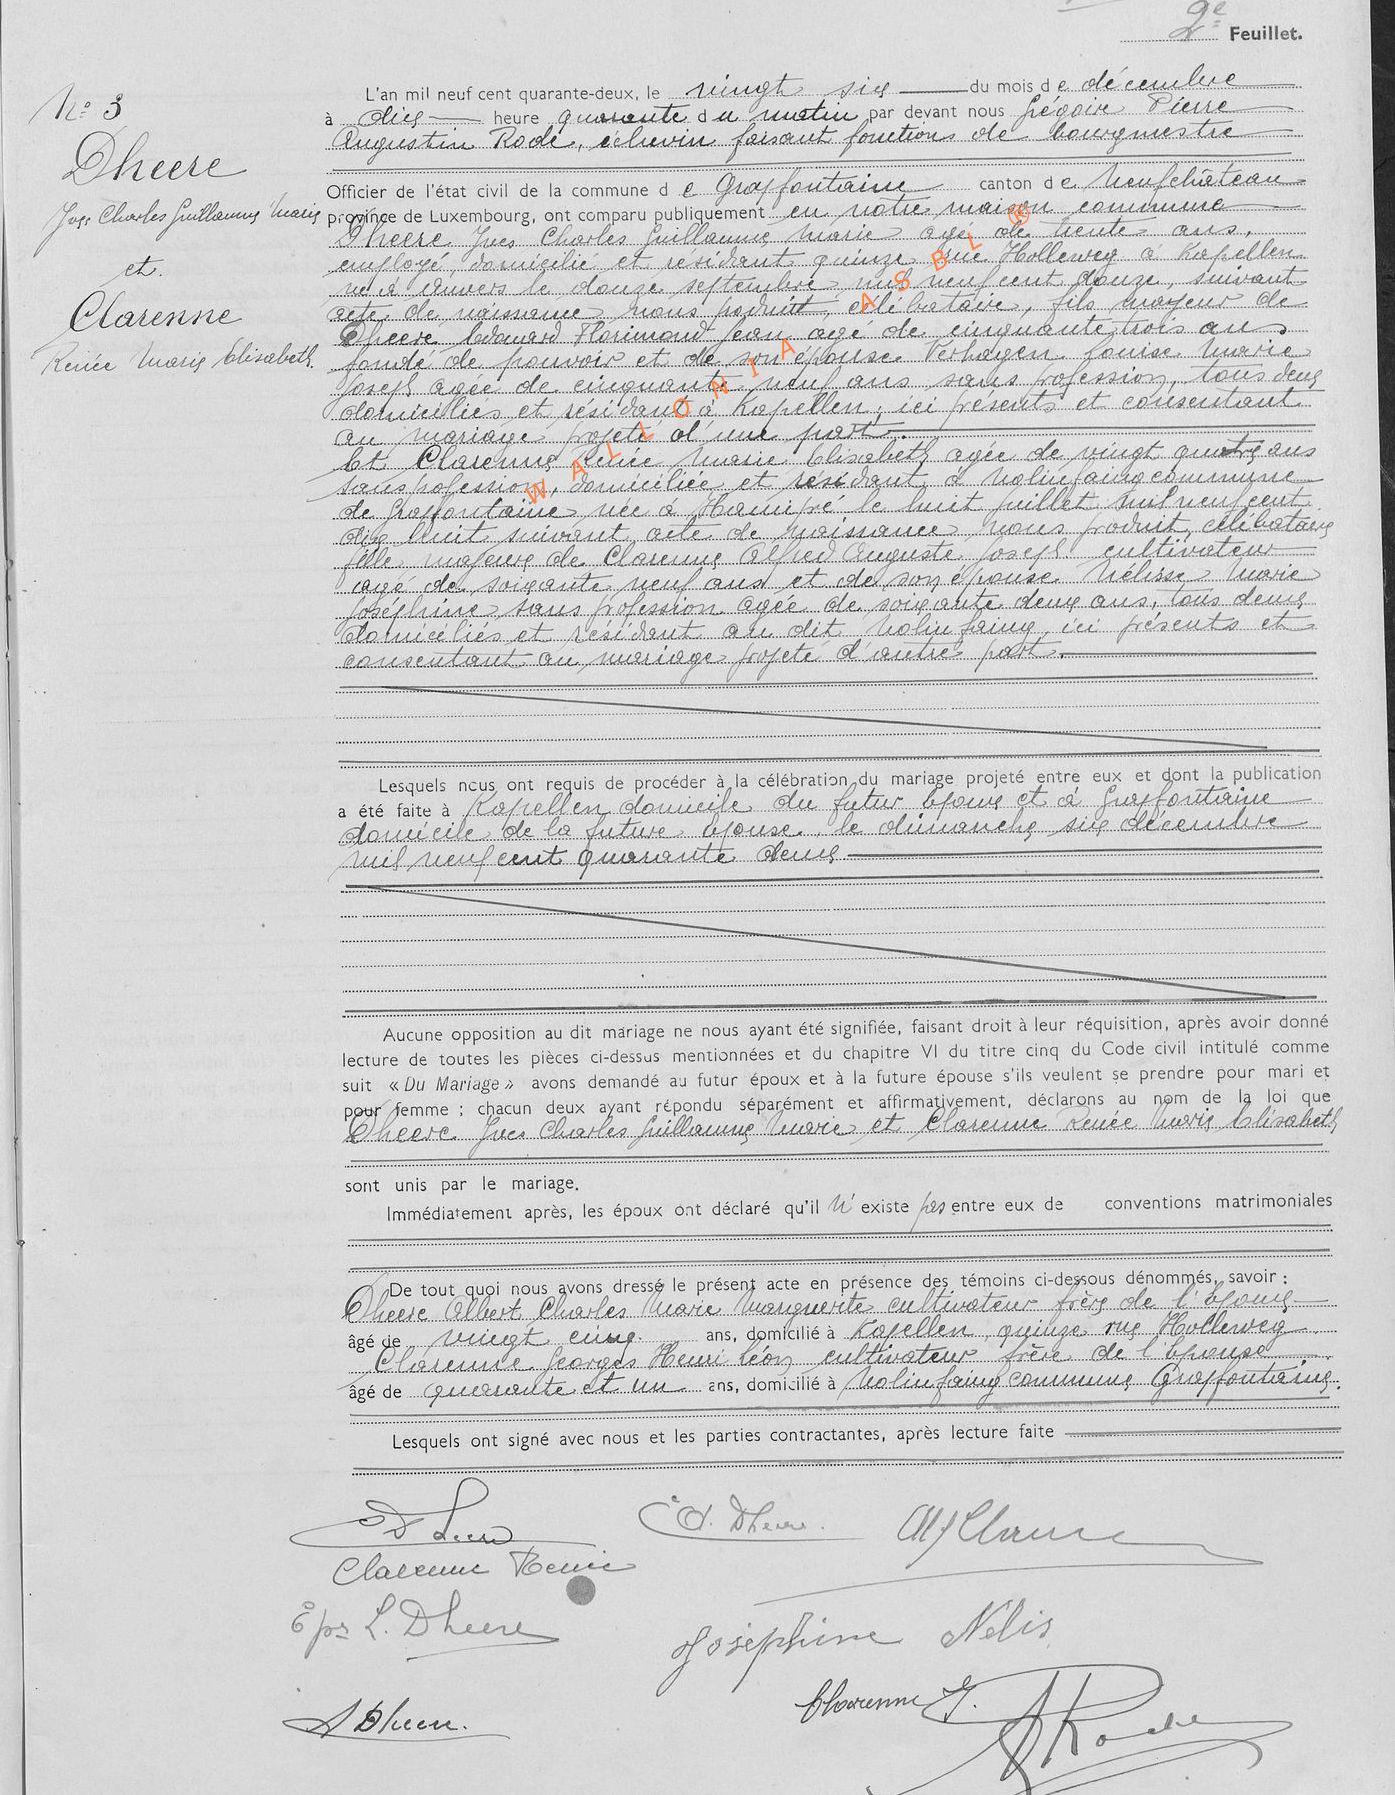 2e Feuillet.
N° 3
Dheere
Yves Charles Guillaume Marie
et
Clarenne
Renée Marie Elisabeth.
L'an mil neuf cent quarante-deux, le vingt six du mois de décembre
à dix heure quarante du matin par devant nous Grégoire Pierre
Augustin Rode, échevin faisant fonctions de bourgmestre
Officier de l'état civil de la commune de Grapfontaine canton de Neufchâteau
province de Luxembourg, ont comparu publiquement en notre maison commune
Dheere Yves Charles Guillaume Marie agé de trente ans,
employé, domicilié et résidant quinze rue Holleweg à Kapellen
né à Anvers le douze septembre mil neuf cent douze, suivant
acte de naissance nous produit, célibataire, fils majeur de
Dheere Edouard Florimond Jean agé de cinquante trois ans
fondé de pouvoir et de son épouse Verhaegen Louise Marie
Joseph agée de cinquante neuf ans sans profession, tous deux
domiciliés et résidant à Kapellen, ici présents et consentant
au mariage projeté d'une part.
Et Clarenne Renée Marie Elisabeth agée de vingt quatre ans
sans profession, domiciliée et résidant à Nolinfaing commune
de Grapfontaine née à Hamipré le huit juillet mil neuf cent
dix huit suivant acte de naissance nous produit, célibataire
fille majeure de Clarenne Alfred Auguste Joseph cultivateur
agé de soixante neuf ans et de son épouse Nélisse Marie
Joséphine sans profession agée de soixante deux ans, tous deux
domiciliés et résidant au dit Nolinfaing, ici présents et
consentant au mariage projeté d'autre part.
WALLONIA ASBL ®
Lesquels nous ont requis de procéder à la célébration du mariage projeté entre eux et dont la publication
a été faite à Kapellen domicile du futur époux et à Grapfontaine
domicile de la future épouse, le dimanche six décembre
mil neuf cent quarante deux
Aucune opposition au dit mariage ne nous ayant été signifiée, faisant droit à leur réquisition, après avoir donné
lecture de toutes les pièces ci-dessus mentionnées et du chapitre VI du titre cinq du Code civil intitulé comme
suit « Du Mariage » avons demandé au futur époux et à la future épouse s'ils veulent se prendre pour mari et
pour femme ; chacun deux ayant répondu séparément et affirmativement, déclarons au nom de la loi que
Dheere Yves Charles Guillaume Marie et Clarenne Renée Marie Elisabeth
sont unis par le mariage.
Immédiatement après, les époux ont déclaré qu'il n'existe pas entre eux de conventions matrimoniales
De tout quoi nous avons dressé le présent acte en présence des témoins ci-dessous dénommés, savoir :
Dheere Albert Charles Marie Marguerite cultivateur frère de l'époux
âgé de vingt cinq ans, domicilié à Kapellen, quinze rue Holleweg
Clarenne Georges Henri Léon cultivateur frère de l'épouse
âgé de quarante et un ans, domicilié à Nolinfaing commune Grapfontaine.
Lesquels ont signé avec nous et les parties contractantes, après lecture faite
Dheere
Ed. Dheere.
Alf Clarenne
Clarenne Renée
Eps L. Dheere
Joséphine Nélis
A Dheere.
Clarenne G.